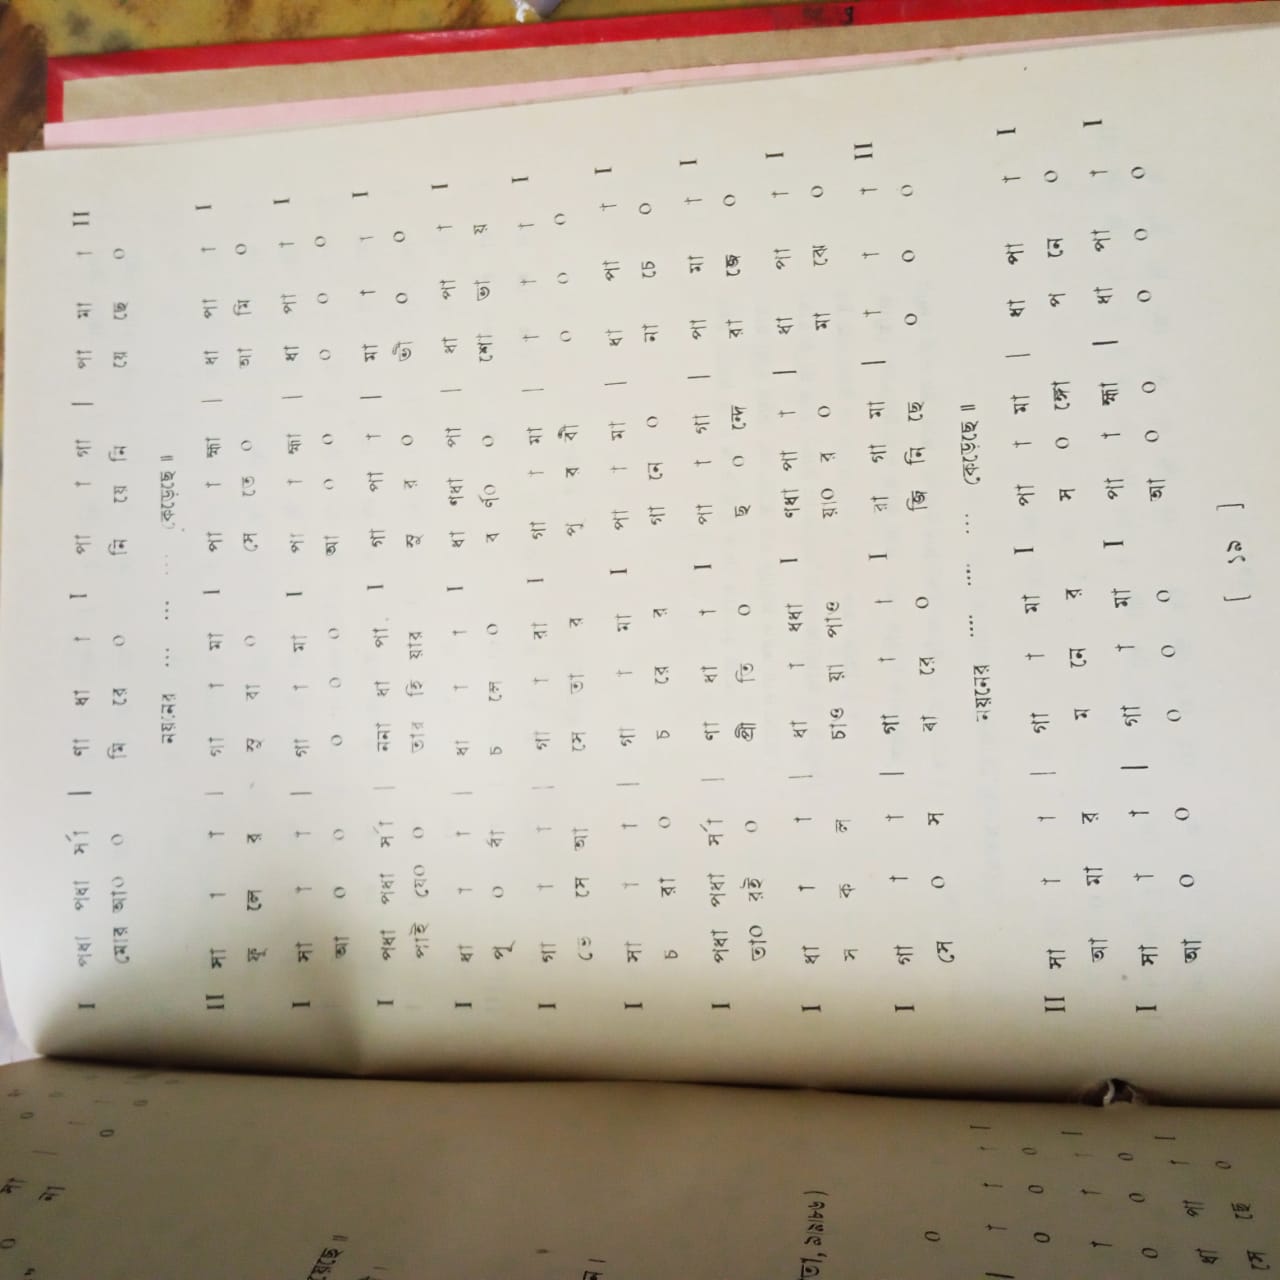 I পধা পধা র্সা | ণা ধা া I পা া গা | পা মা া II
মোর আ০ ০ মি রে ০ নি য়ে নি য়ে ছে ০
নয়নের ... ... ... কেড়েছে॥
II সা া া | গা া মা I পা া হ্মা | ধা পা া I
ফু লে র সু বা ০ সে তে ০ আ মি ০
I সা া া | গা া মা I পা া হ্মা | ধা পা া I
আ ০ ০ ০ ০ ০ আ ০ ০ ০ ০ ০
I পধা পধা র্সা | ননা ধা পা I গা পা া | মা া া I
পাই যে০ ০ তার হি য়ার সু র ০ ভী ০ ০
I ধা া া | ধা া া I ধা ণধা পা | ধা পা া I
পূ ০ র্বা চ লে ০ ব র্ণ০ ০ শো ভা য়
I গা া া | গা া রা I গা া মা | া া া I
ভে সে আ সে তা র পূ র বী ০ ০ ০
I সা া া | গা া মা I পা া মা | ধা পা া I
চ রা ০ চ রে র গা নে ০ না চে ০
I পধা পধা র্সা | ণা ধা া I পা া গা | পা মা া I
তা০ রই ০ প্রী তি ০ ছ ০ ন্দে রা জে ০
I ধা া া | ধা া ধধা I ণধা পা া | ধা পা া I
স ক ল চাও য়া পাও য়া০ র ০ মা ঝে ০
I গা া া | গা া া I রা গা মা | া া া II
সে ০ স বা রে ০ জি নি ছে ০ ০ ০
নয়নের .... .... ... কেড়েছে॥
II সা া া | গা া মা I পা া মা | ধা পা া I
আ মা র ম নে র স ০ ঙ্গো প নে ০
I সা া া | গা া মা I পা া হ্মা | ধা পা া I
আ ০ ০ ০ ০ ০ আ ০ ০ ০ ০ ০
[ ১৯ ]